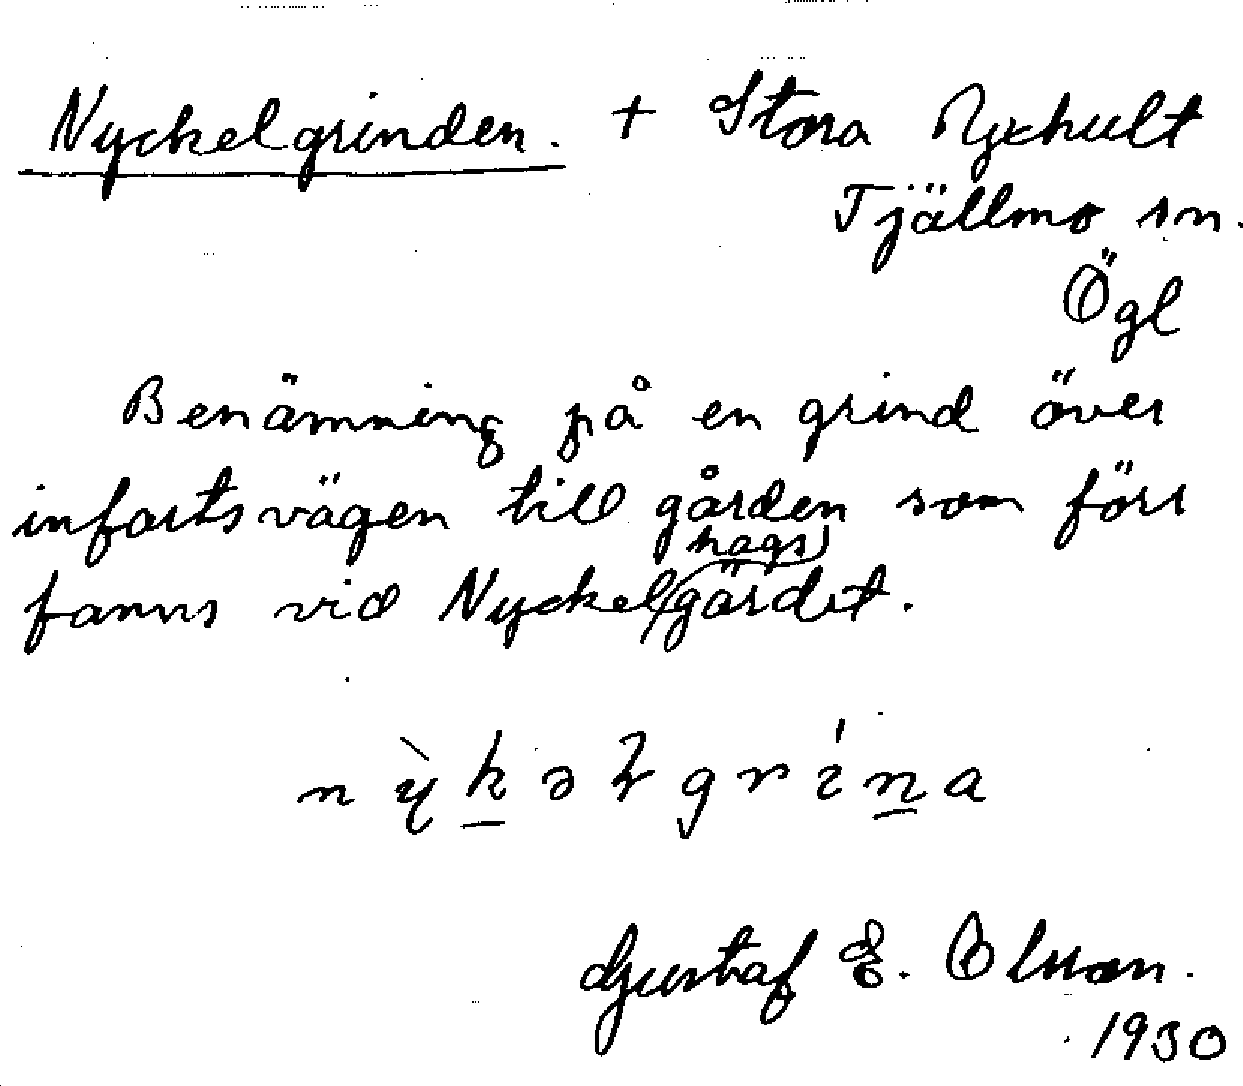 Nyckelgrinden. + Stora Ryckult
Tjällmo sn.
Ögl
Benämning på en grind över
infartsvägen till gården som förr
fanns vid Nyckelhagsgärdet.
Gustaf E. Olsson.
1930